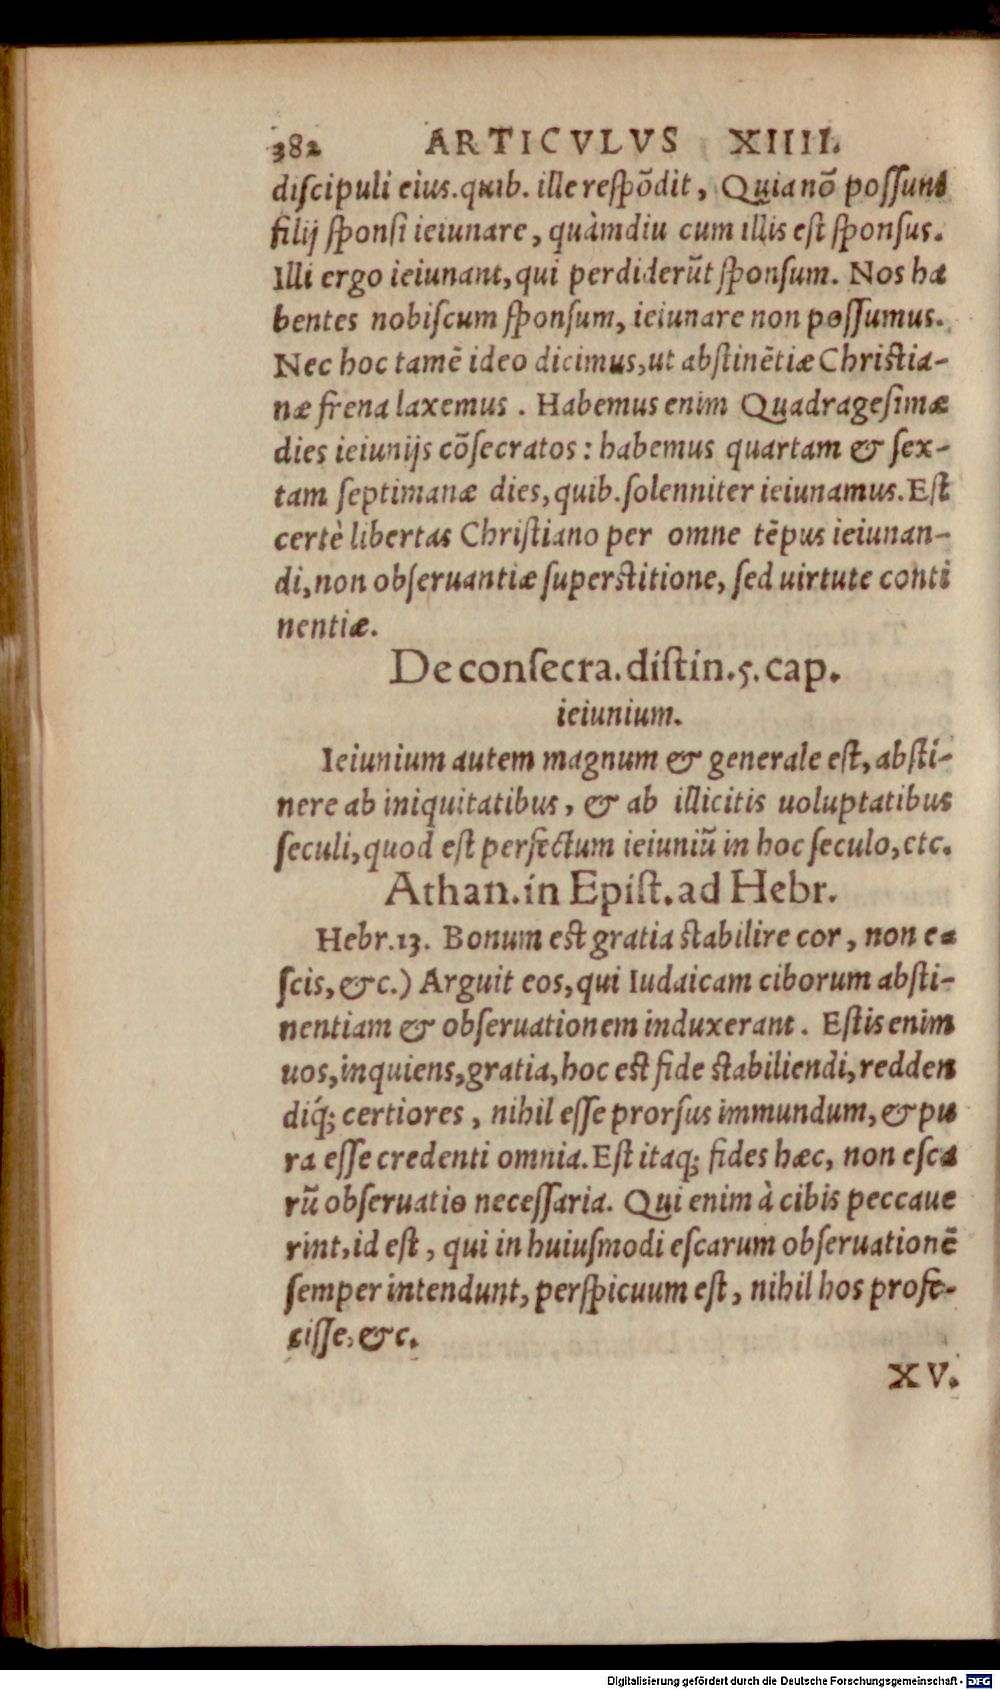 382 ARTICVLVS XIIII.
diſcipuli eius. quib. ille reſpōdit, Quia nō poſſunt
filij ſponſi ieiunare, quàmdiu cum illis eſt ſponſus.
Illi ergo ieiunant, qui perdiderūt ſponſum. Nos ha
bentes nobiſcum ſponſum, ieiunare non poſſumus.
Nec hoc tamē ideo dicimus, ut abſtinētiæ Chriſtia-
næ frena laxemus. Habemus enim Quadrageſimæ
dies ieiunijs cōſecratos: habemus quartam & ſex-
tam ſeptimanæ dies, quib. ſolenniter ieiunamus. Eſt
certè libertas Chriſtiano per omne tēpus ieiunan-
di, non obſeruantiæ ſuperſtitione, ſed uirtute conti
nentiæ.
De conſecra. diſtin. 5. cap.
ieiunium.
Ieiunium autem magnum & generale eſt, abſti-
nere ab iniquitatibus, & ab illicitis uoluptatibus
ſeculi, quod eſt perfectum ieiuniū in hoc ſeculo, etc.
Athan. in Epiſt. ad Hebr.
Hebr. 13. Bonum eſt gratia ſtabilire cor, non e-
ſcis, &c.) Arguit eos, qui Iudaicam ciborum abſti-
nentiam & obſeruationem induxerant. Eſtis enim
uos, inquiens, gratia, hoc eſt fide ſtabiliendi, redden
diq́; certiores, nihil eſſe prorſus immundum, & pu
ra eſſe credenti omnia. Eſt itaq; fides hæc, non eſca
rū obſeruatio neceſſaria. Qui enim à cibis peccaue
rint, id eſt, qui in huiuſmodi eſcarum obſeruationē
ſemper intendunt, perſpicuum eſt, nihil hos profe-
ciſſe, &c.
XV.
Digitalisierung gefördert durch die Deutsche Forschungsgemeinschaft - DFG